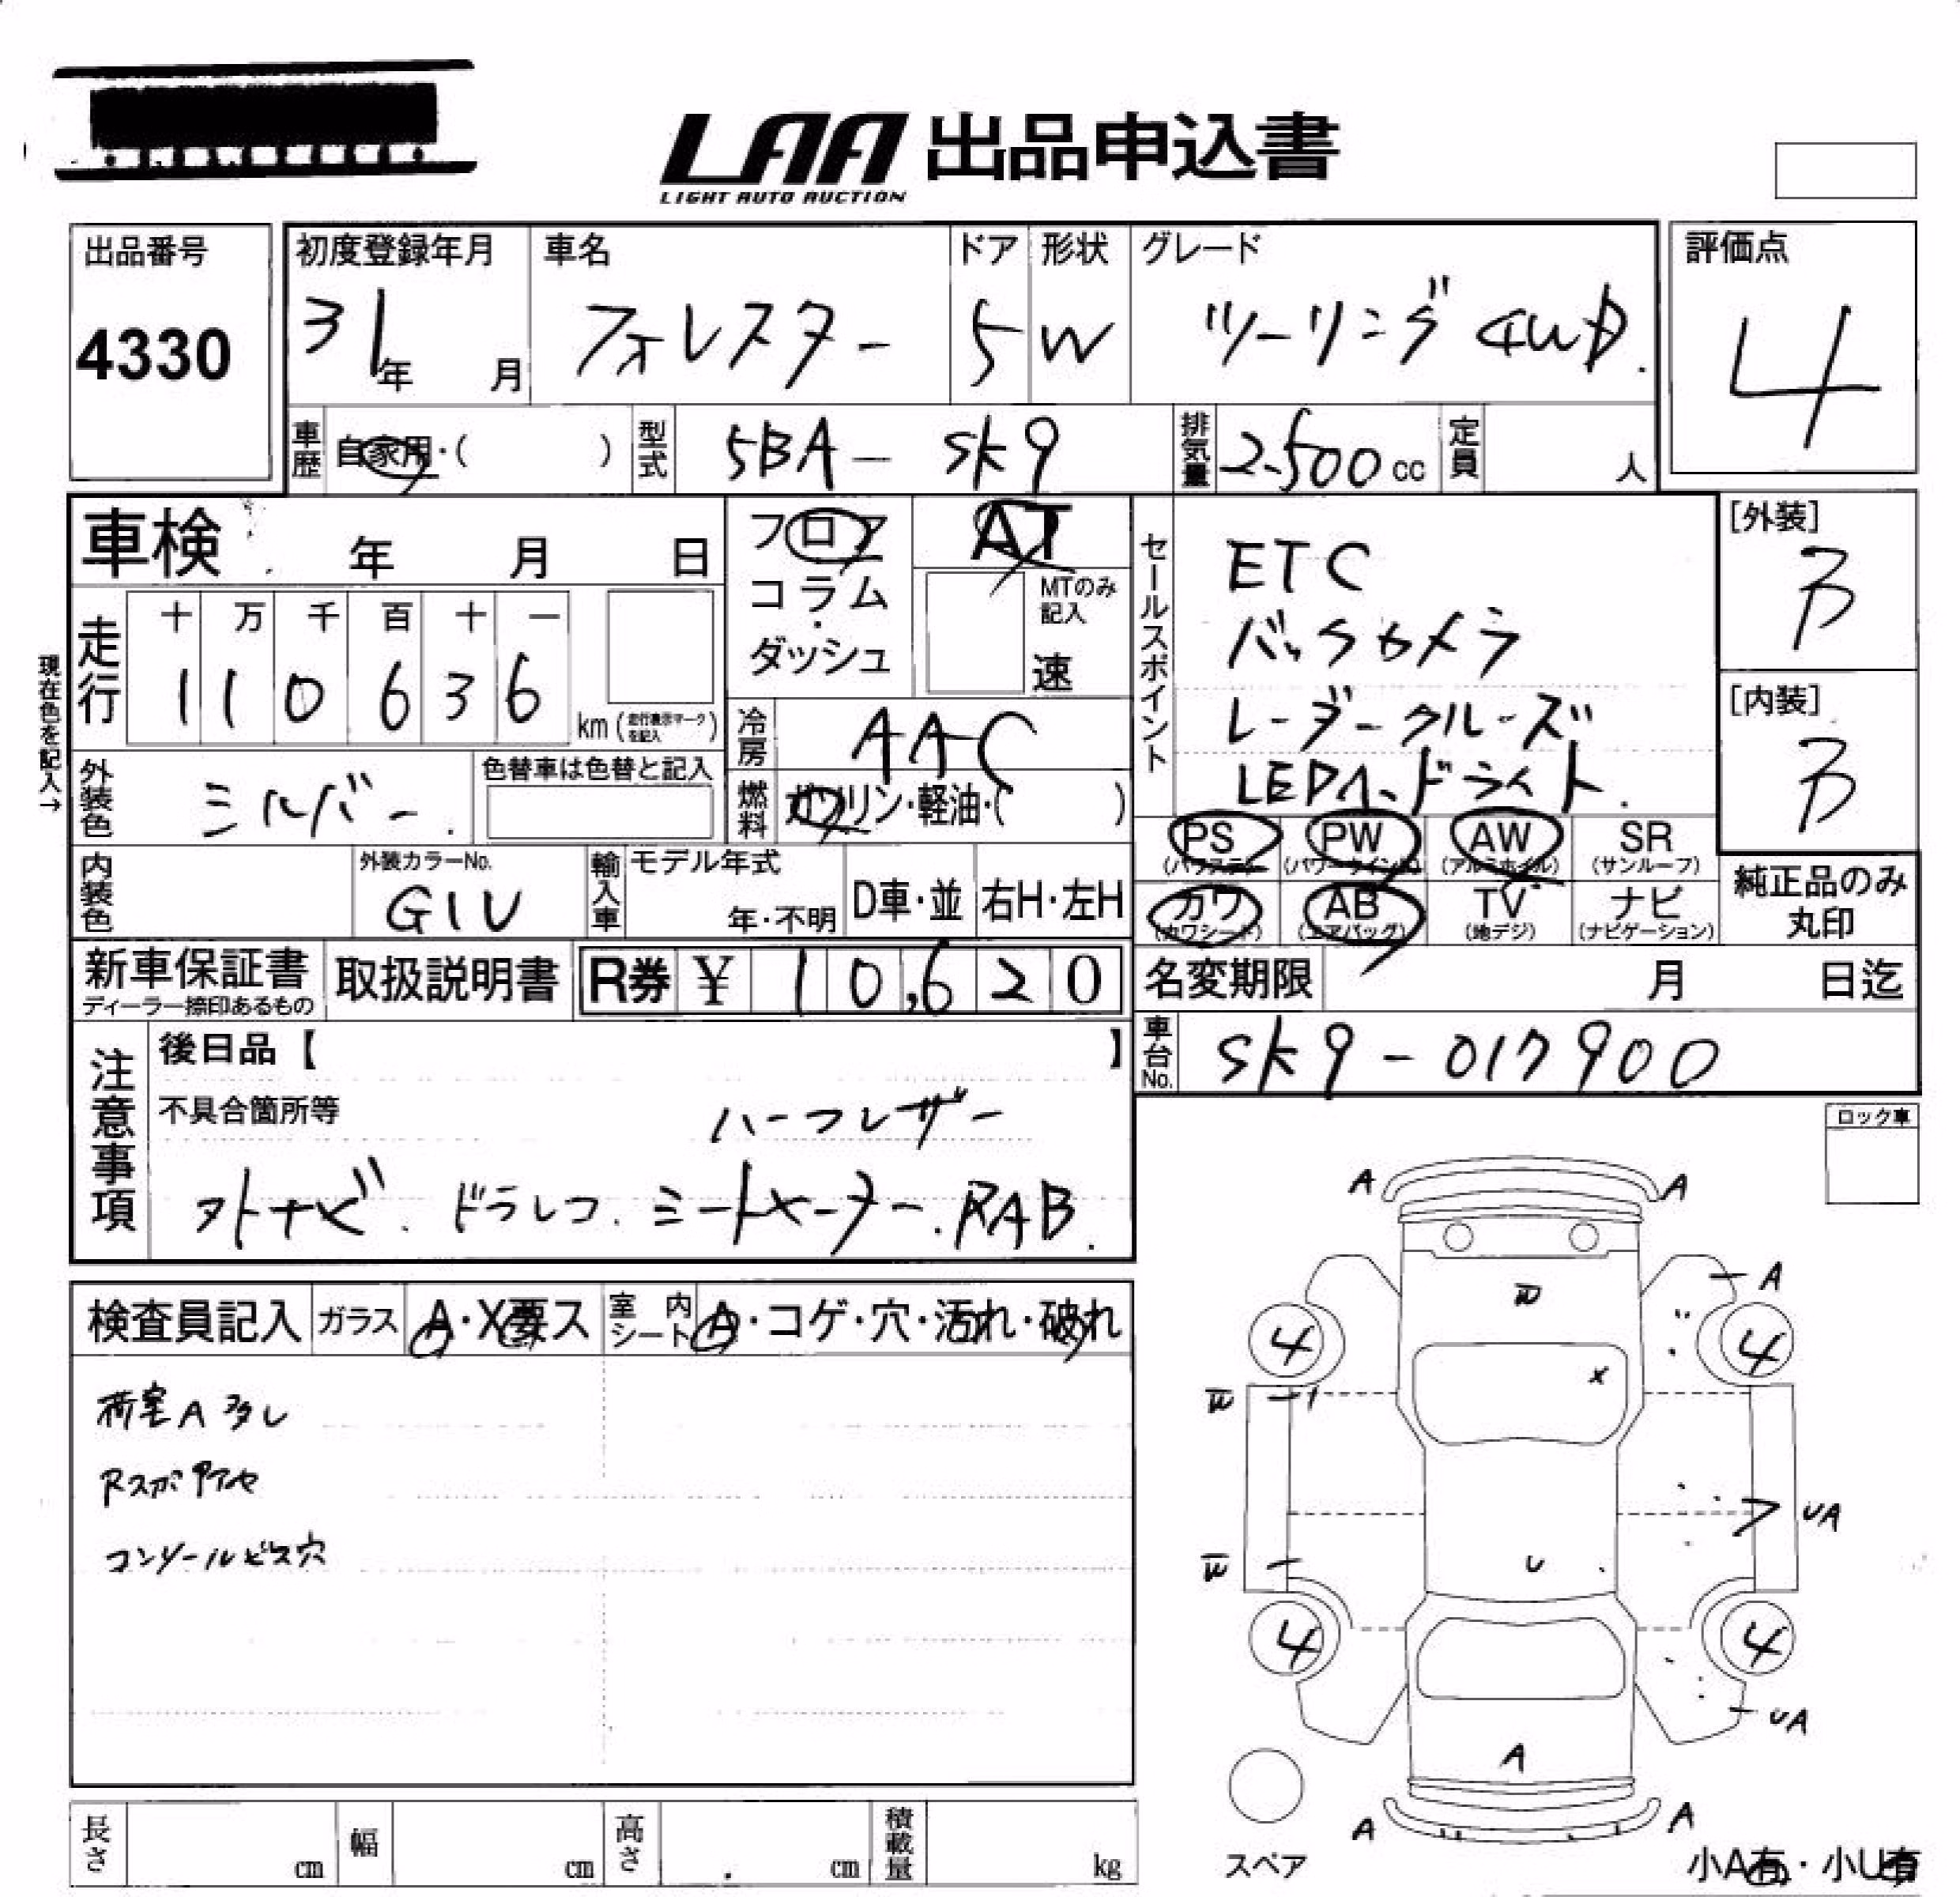 LAA 出品申込書
LIGHT AUTO AUCTION
出品番号
4330
初度登録年月
31年 月
車名
フォレスター
ドア
5
形状
W
グレード
ツーリング 4WD.
評価点
4
車歴 自家用・( )
型式 5BA- SK9
排気量 2500cc
定員 人
車検 年 月 日
フロア
コラム
・
ダッシュ
AT
MTのみ
記入
速
現在色を記入→
走行
十 万 千 百 十 一
1 1 0 6 3 6
km (走行表示マークを記入)
冷房 AAC
外装色 シルバー.
色替車は色替と記入
燃料 ガソリン・軽油・( )
セールスポイント
ETC
バックカメラ
レーダークルーズ
LEDヘッドライト.
[外装]
B
[内装]
B
内装色
外装カラーNo.
G1U
輸入車
モデル年式
年・不明
D車・並
右H・左H
PS
(パワステ)
PW
(パワーウインド)
AW
(アルミホイル)
SR
(サンルーフ)
カワ
(カワシート)
AB
(エアバッグ)
TV
(地デジ)
ナビ
(ナビゲーション)
純正品のみ
丸印
新車保証書
ディーラー捺印あるもの
取扱説明書
R券 ¥ 10,620
名変期限 月 日迄
車台No. SK9-017900
注意事項
後日品【 】
不具合箇所等
ハーフレザー
ナビ. ドラレコ. シートヒーター. RAB.
ロック車
検査員記入
ガラス A・X要ス
室内シート A・コゲ・穴・汚れ・破れ
荷室A 多し
コンソールビス穴
A A
A
W
4 4
X
W
UA
W
U
4 4
UA
A
A A
スペア
小A有・小U有
長さ cm
幅 cm
高さ cm
積載量 kg